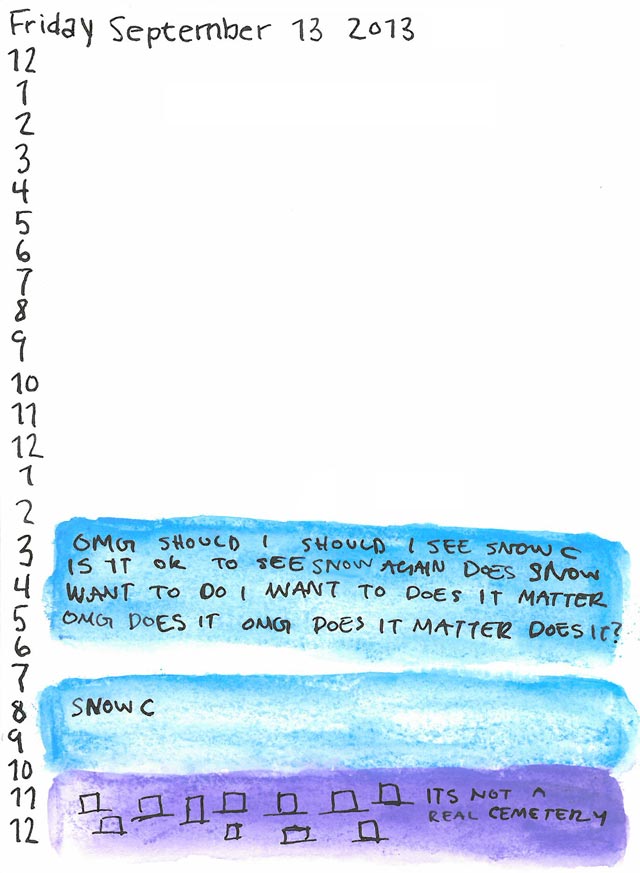 Friday September 13 2013
12
1
2
3
4
5
6
7
8
9
10
11
12
1
2
3
4
5
6
7
8
9
10
11
12
OMG SHOULD I SHOULD I SEE SNOW C
IS IT OK TO SEE SNOW AGAIN DOES SNOW
WANT TO DO I WANT TO DOES IT MATTER
OMG DOES IT OMG DOES IT MATTER DOES IT?
SNOW C
ITS NOT A
REAL CEMETERY